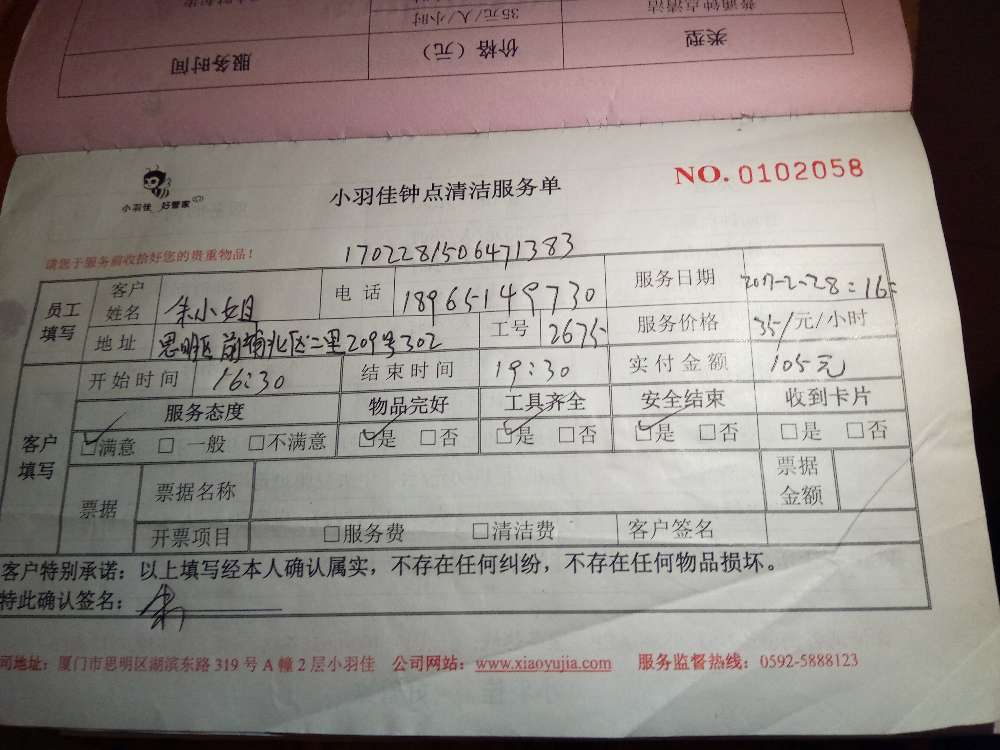 普通钟点清洁 35元/人/小时
类型 价格（元） 服务时间
小羽佳 好管家
小羽佳钟点清洁服务单
NO. 0102058
请您于服务前收拾好您的贵重物品！
1702281506471383
员工填写 客户姓名 朱小姐 电话 18965149730 服务日期 2017-2-28:16:
地址 思明区前埔北区二里209号302 工号 2675 服务价格 35/元/小时
客户填写 开始时间 16:30 结束时间 19:30 实付金额 105元
服务态度 物品完好 工具齐全 安全结束 收到卡片
☑满意 □一般 □不满意 ☑是 □否 ☑是 □否 ☑是 □否 □是 □否
票据 票据名称 票据金额
开票项目 □服务费 □清洁费 客户签名
客户特别承诺：以上填写经本人确认属实，不存在任何纠纷，不存在任何物品损坏。
特此确认签名：朱
司地址：厦门市思明区湖滨东路 319 号 A 幢 2 层小羽佳 公司网站：www.xiaoyujia.com 服务监督热线：0592-5888123